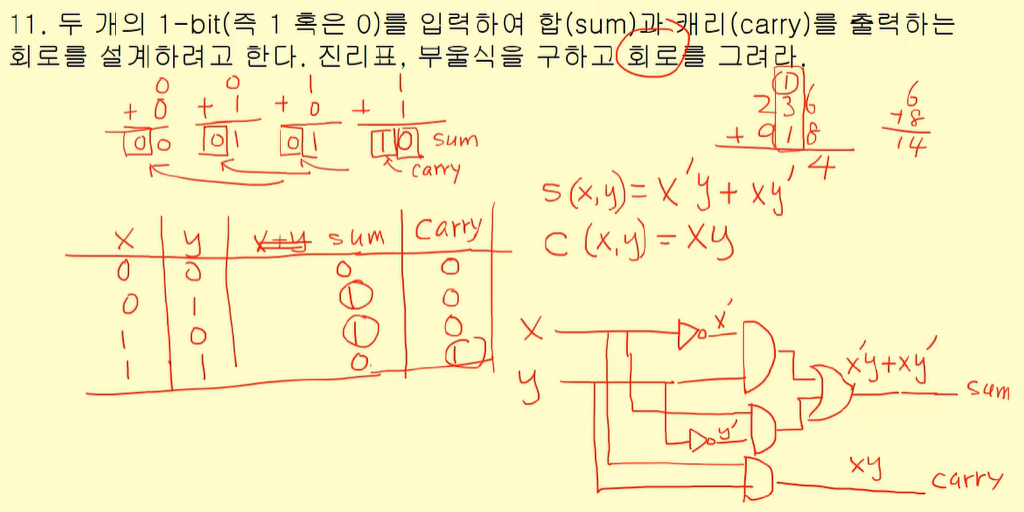 11. 두 개의 1-bit(즉 1 혹은 0)를 입력하여 합(sum)과 캐리(carry)를 출력하는
회로를 설계하려고 한다. 진리표, 부울식을 구하고 회로를 그려라.
0 0 1 1
+ 0 + 1 + 0 + 1
00 01 01 10 sum
carry
1
236
+ 918
4
6
+8
14
S(x,y)= x'y + xy'
C (x,y) = xy
x y x+y sum carry
0 0 0 0
0 1 1 0
1 0 1 0
1 1 0 1
x x'
y
y'
x'y+xy' sum
xy carry